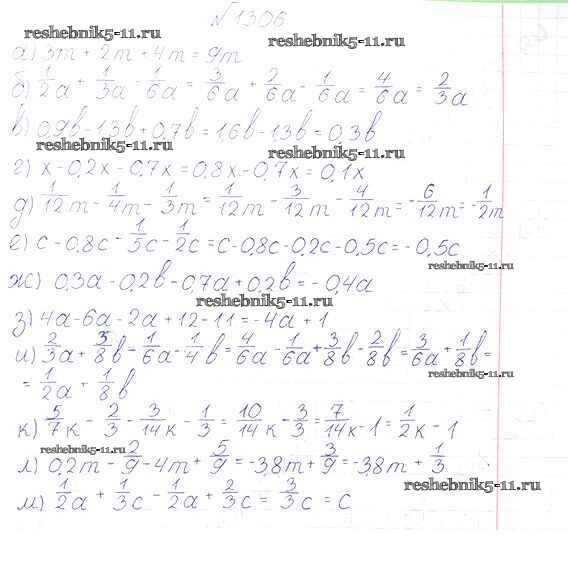 √1306
reshebnik5-11.ru
reshebnik5-11.ru
а) 3m + 2m + 4m = 9m
б) 1/2a + 1/3a - 1/6a = 3/6a + 2/6a - 1/6a = 4/6a = 2/3a
в) 0,9b - 1,3b + 0,7b = 1,6b - 1,3b = 0,3b
reshebnik5-11.ru
reshebnik5-11.ru
г) x - 0,2x - 0,7x = 0,8x - 0,7x = 0,1x
д) 1/12m - 1/4m - 1/3m = 1/12m - 3/12m - 4/12m = -6/12m = -1/2m
е) c - 0,8c - 1/5c - 1/2c = c - 0,8c - 0,2c - 0,5c = -0,5c
reshebnik5-11.ru
ж) 0,3a - 0,2b - 0,7a + 0,2b = -0,4a
reshebnik5-11.ru
з) 4a - 6a - 2a + 12 - 11 = -4a + 1
и) 2/3a + 3/8b - 1/6a - 1/4b = 4/6a - 1/6a + 3/8b - 2/8b = 3/6a + 1/8b =
reshebnik5-11.ru
= 1/2a + 1/8b
к) 5/7k - 2/3 - 3/14k - 1/3 = 10/14k - 3/3 = 7/14k - 1 = 1/2k - 1
reshebnik5-11.ru
л) 0,2m - 2/9 - 4m + 5/9 = -3,8m + 3/9 = -3,8m + 1/3
reshebnik5-11.ru
м) 1/2a + 1/3c - 1/2a + 2/3c = 3/3c = c